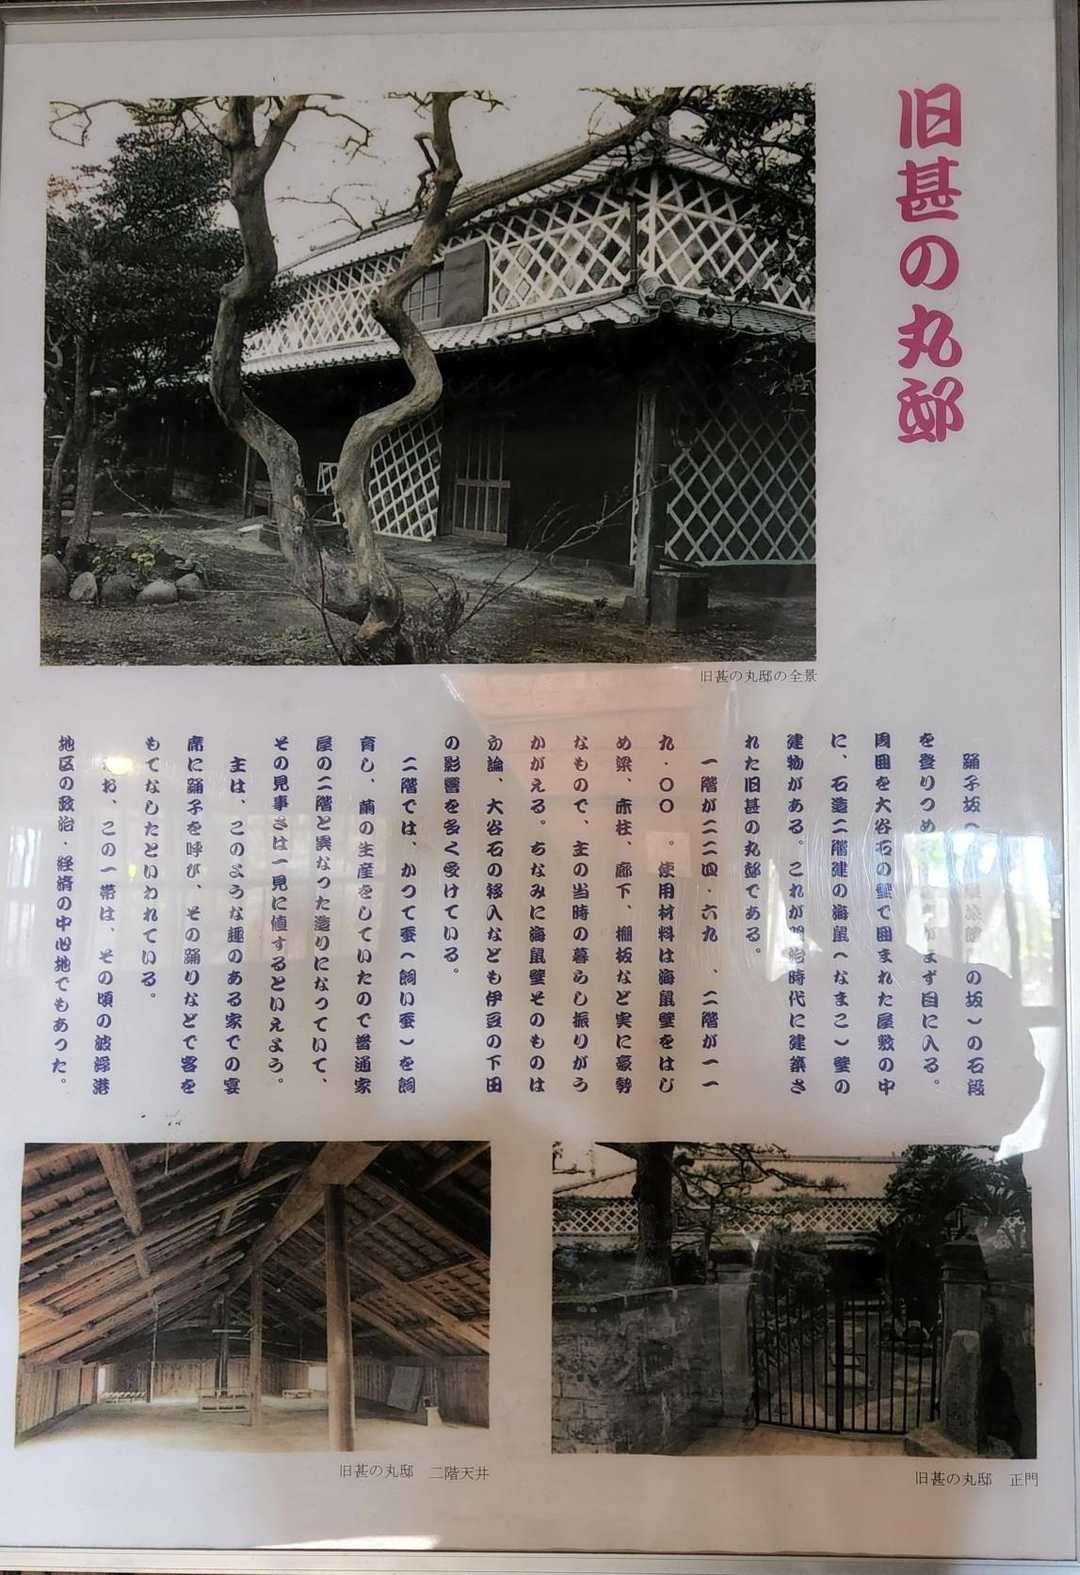 旧甚の丸邸
旧甚の丸邸の全景
踊子坂（ の坂）の石段
を登りつめ まず目に入る。
周囲を大谷石の壁で囲まれた屋敷の中
に、石造二階建の海鼠（なまこ）壁の
建物がある。これが明治時代に建築さ
れた旧甚の丸邸である。
一階が二二四・六九 、二階が一一
九・〇〇 。使用材料は海鼠壁をはじ
め梁、赤柱、廊下、棚板など実に豪勢
なもので、主の当時の暮らし振りがう
かがえる。ちなみに海鼠壁そのものは
勿論、大谷石の移入なども伊豆の下田
の影響を多く受けている。
二階では、かつて蚕（飼い蚕）を飼
育し、繭の生産をしていたので普通家
屋の二階と異なった造りになっていて、
その見事さは一見に値するといえよう。
主は、このような趣のある家での宴
席に踊子を呼び、その踊りなどで客を
もてなしたといわれている。
お、この一帯は、その頃の波浮港
地区の政治・経済の中心地でもあった。
旧甚の丸邸 二階天井
旧甚の丸邸 正門